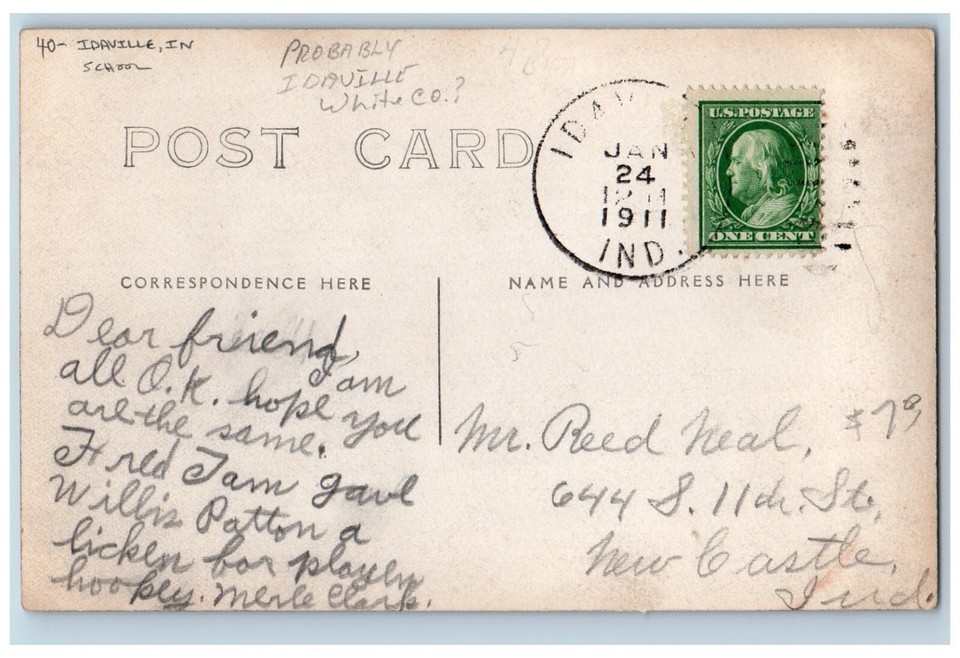 40- IDAVILLE, IN
SCHOOL
PROBABLY
IDAVILLE
White CO.?
POST CARD
IDAV
JAN
24
1911
IND.
U.S. POSTAGE
ONE CENT
CORRESPONDENCE HERE
NAME AND ADDRESS HERE
Dear friend,
I am
all O.K. hope you
are the same.
Fred Tam gave
Willis Patton a
licken for playen
hookey. Merle Clark.
Mr. Reed Neal,
644 S. 11th. St.,
New Castle,
Ind.